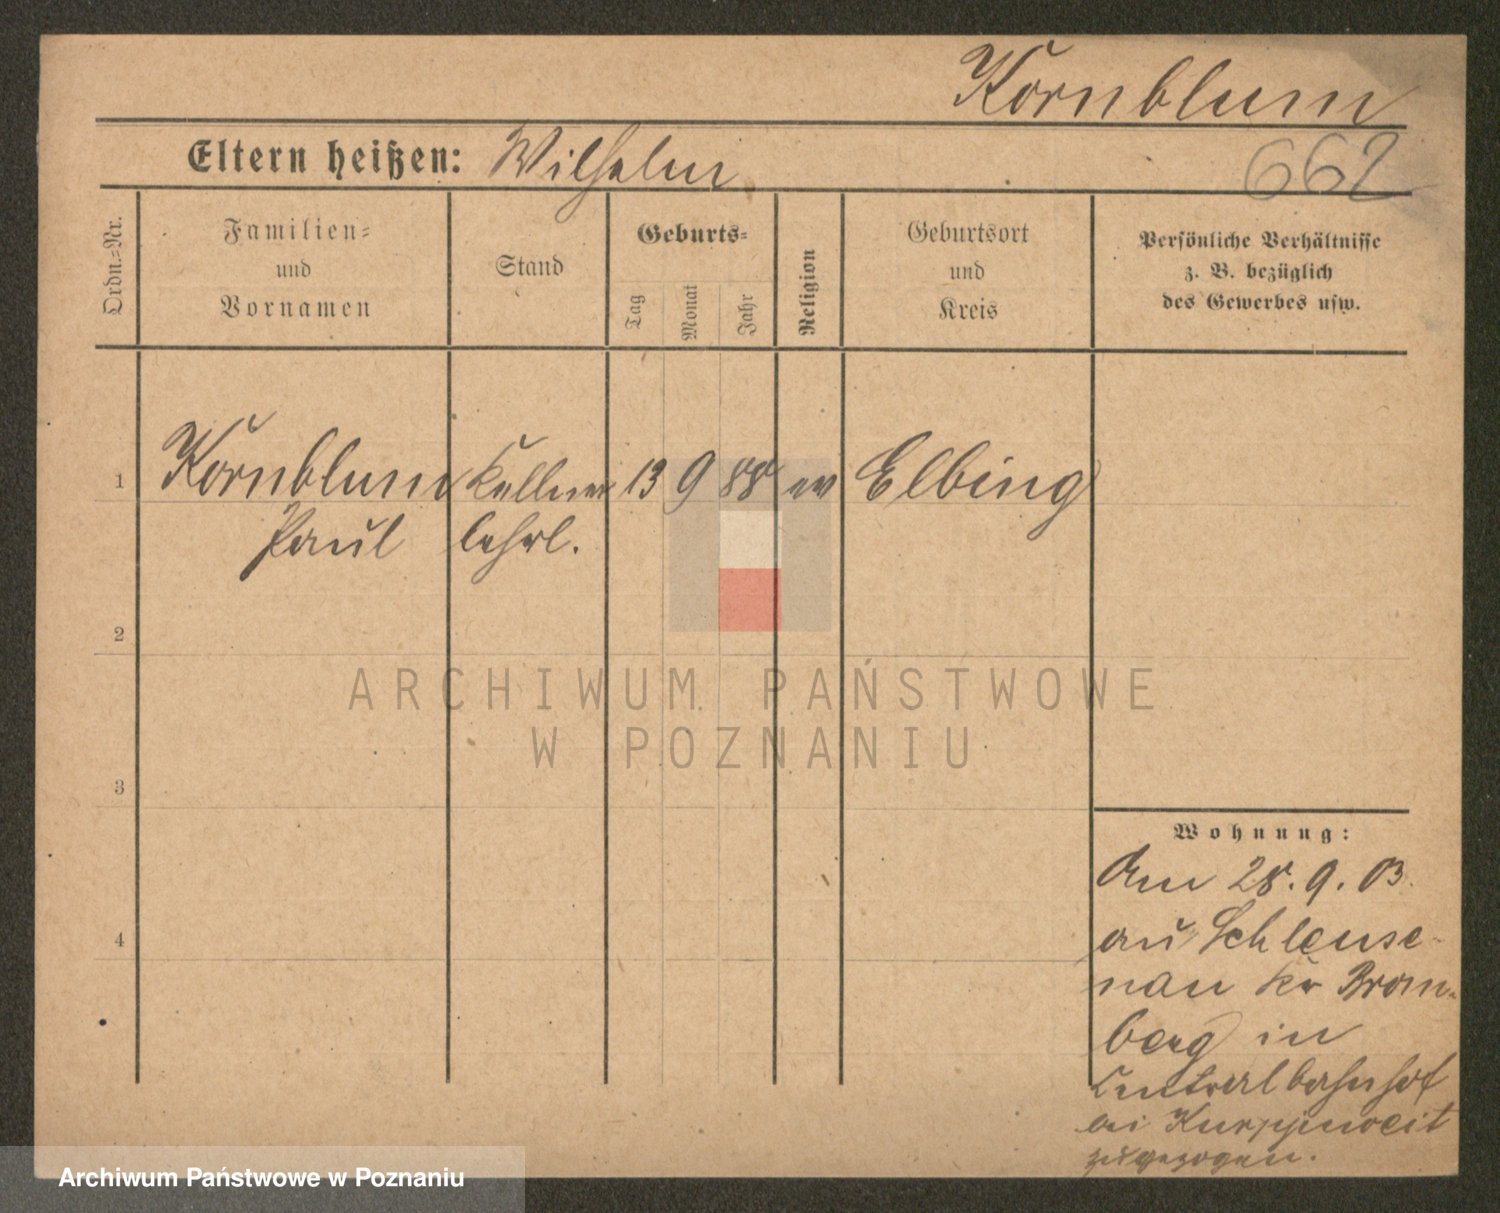 Kornblum
Eltern heißen: Wilhelm
662
Ordn.-Nr.
Familien-
und
Vornamen
Stand
Geburts-
Tag
Monat
Jahr
Religion
Geburtsort
und
Kreis
Persönliche Verhältnisse
z. B. bezüglich
des Gewerbes usw.
1 Kornblum Kellner 13 9 88 ev Elbing
Paul lehrl.
2
3
4
ARCHIWUM PAŃSTWOWE
W POZNANIU
Wohnung:
Am 28.9.03.
aus Schleuse-
nau Kr Brom-
berg in
Centralbahnhof
bei
zugezogen.
Archiwum Państwowe w Poznaniu